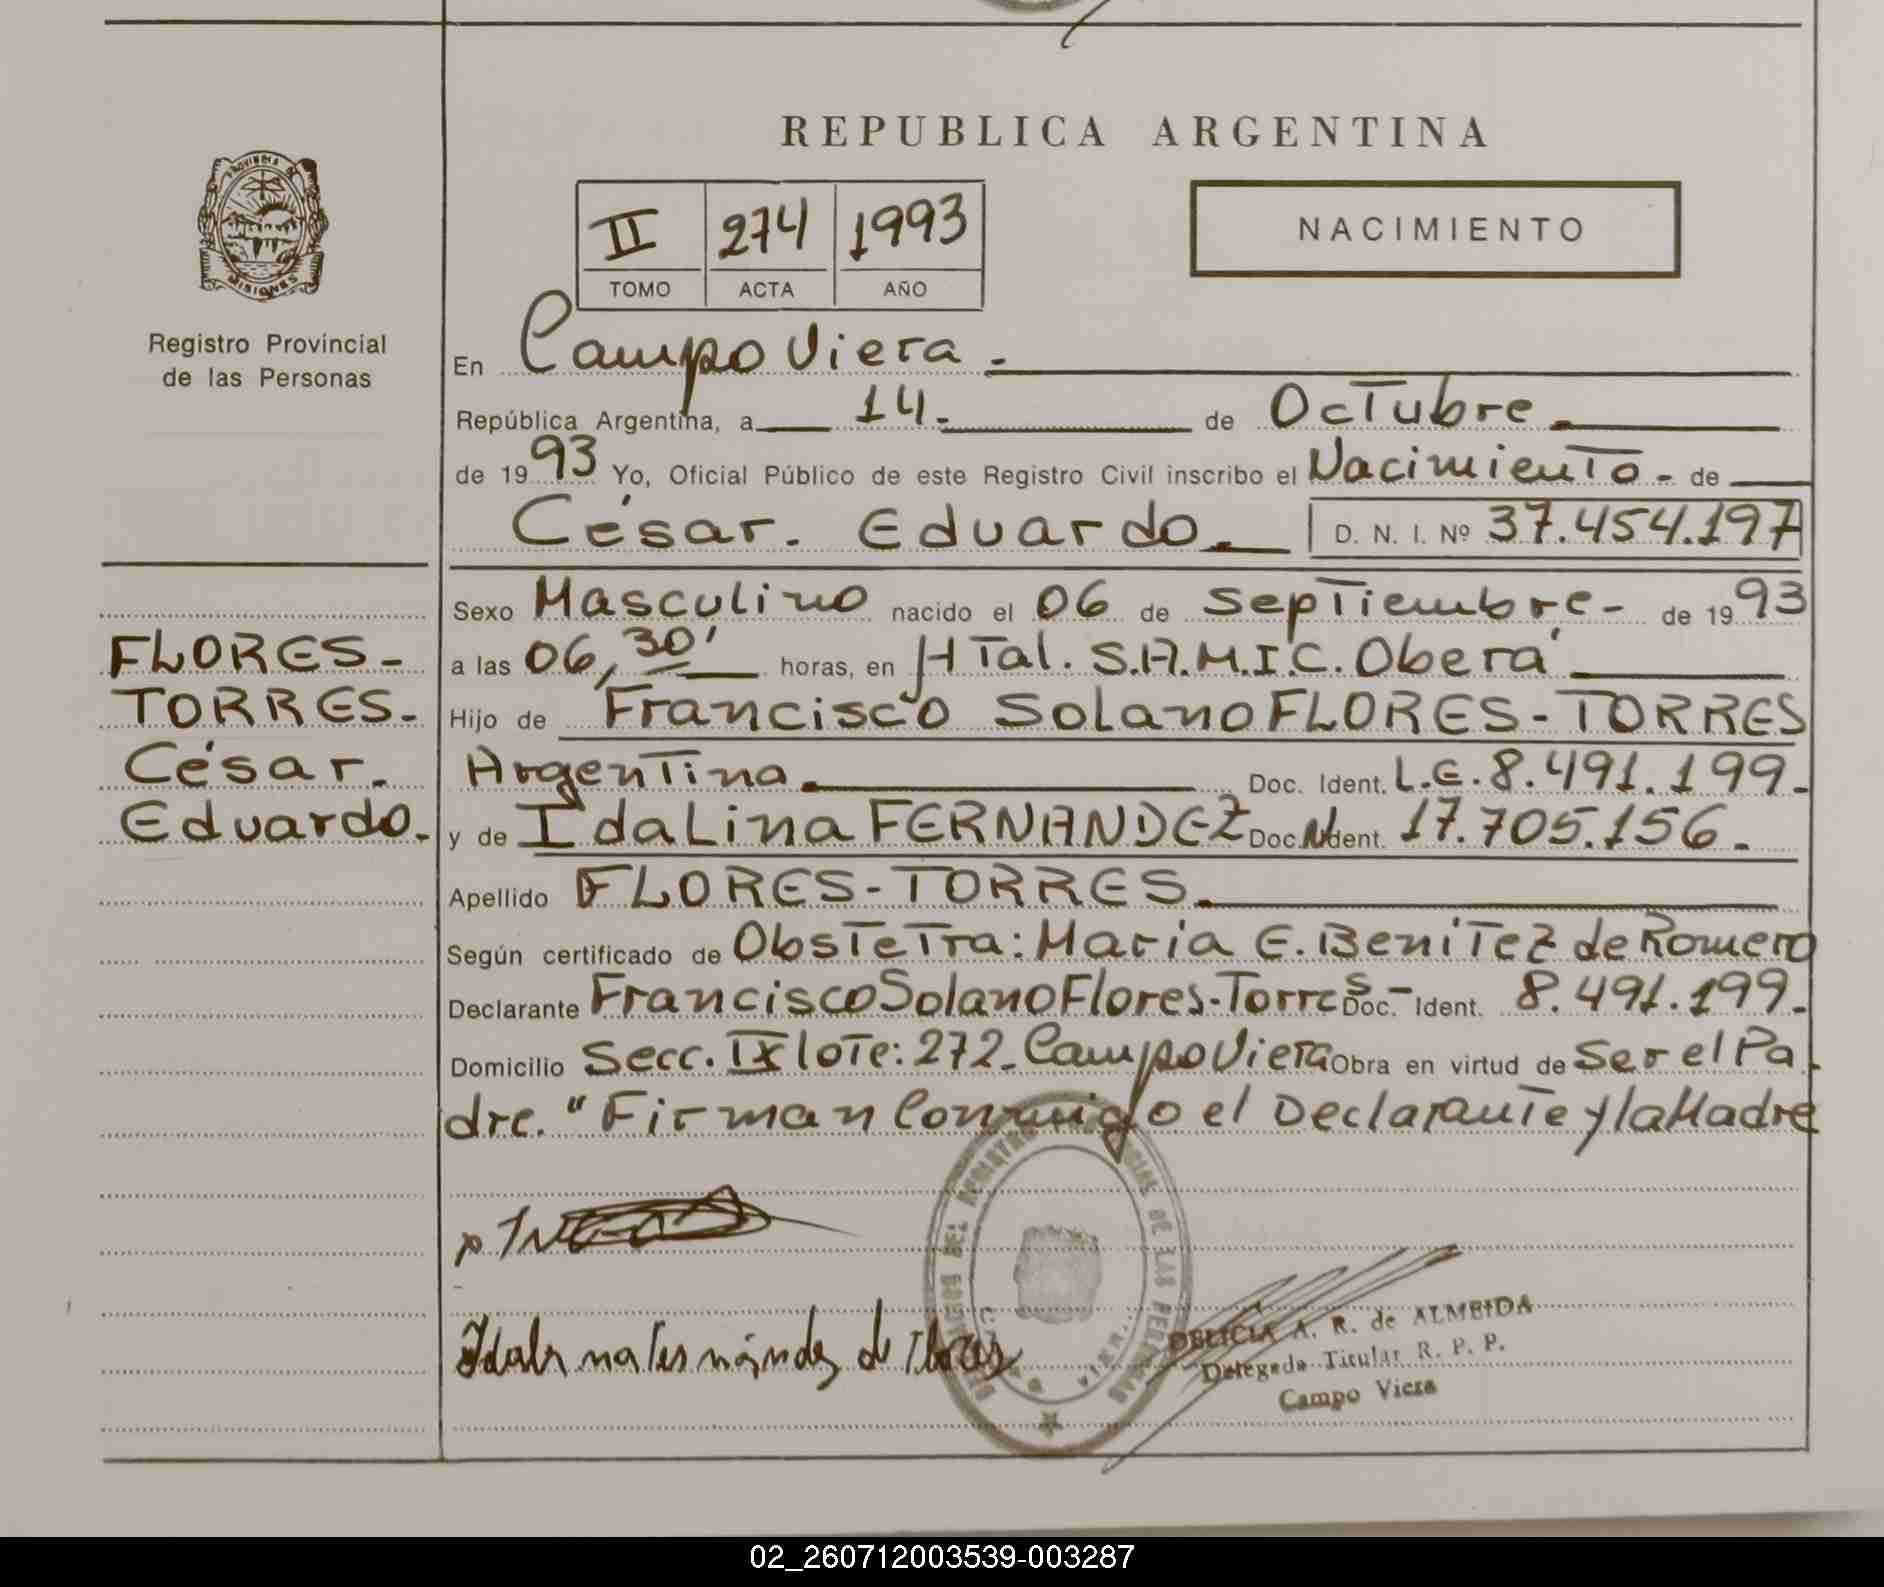 REPUBLICA ARGENTINA
PROVINCIA DE
MISIONES
Registro Provincial
de las Personas
II 274 1993
TOMO ACTA AÑO
NACIMIENTO
En Campo Viera.
República Argentina, a 14. de Octubre
de 1993 Yo, Oficial Público de este Registro Civil inscribo el Nacimiento. de
César. Eduardo. D. N. I. Nº 37.454.197
Sexo Masculino nacido el 06 de Septiembre- de 1993
a las 06,30' horas, en HTal. S.A.M.I.C. Oberá
Hijo de Francisco Solano FLORES-TORRES
Argentina. Doc. Ident. L.E. 8.491.199.
y de Idalina FERNANDEZ Doc. Ident. 17.705.156.
Apellido FLORES-TORRES.
Según certificado de Obstetra: Maria E. Benitez de Romero
Declarante Francisco Solano Flores-Torres Doc. Ident. 8.491.199.
Domicilio Secc. IX lote: 272. Campo Viera Obra en virtud de Ser el Pa
dre. "Firman Conmigo el Declarante y la Madre
FLORES-
TORRES.
César.
Eduardo.
Idalina Fernández de Flores
DELICIA A. R. de ALMEIDA
Delegada Titular R. P. P.
Campo Viera
02_260712003539-003287